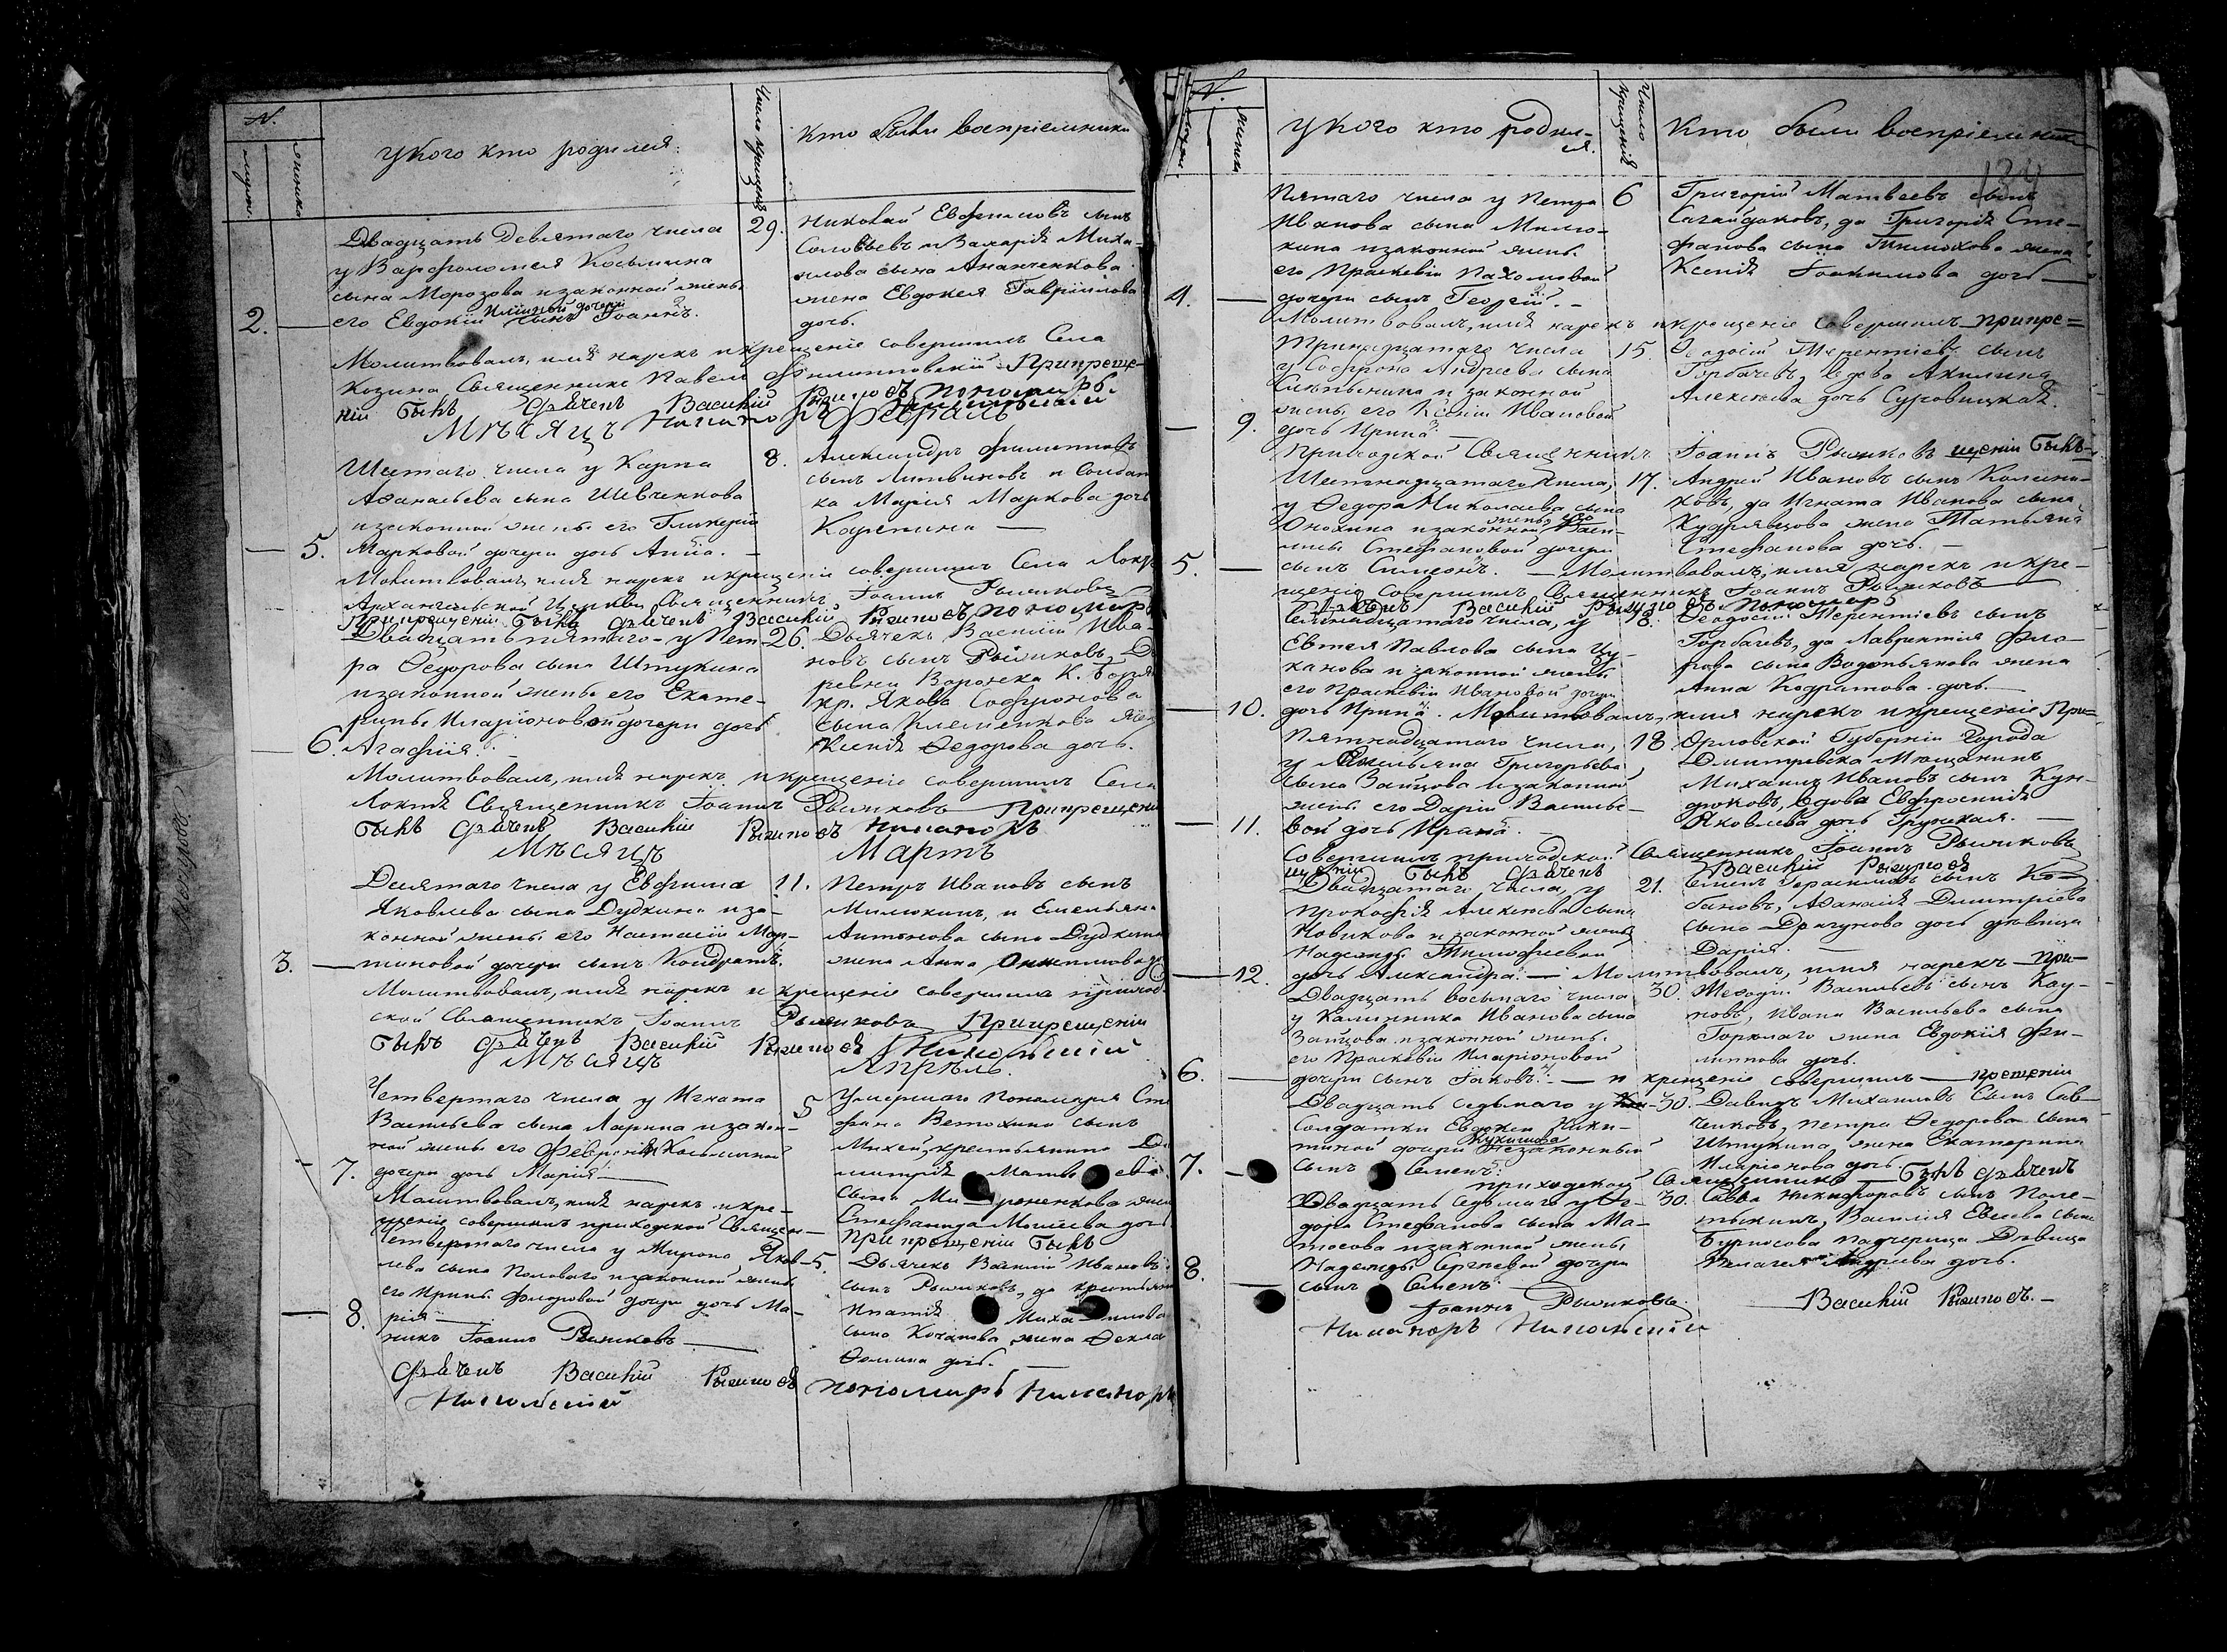 №.
мужес.
женска
У кого кто родился.
Число крещенія
Кто были воспріемники
Двадцать девятаго числа
у Варфоломея Косьмина
сына Морозова и законной жены
его Евдокіи Иліиной дочери сынъ Іоаннъ.
2.
29.
Николай Евфимовъ сынъ
Соловьевъ и Захарія Миха-
илова сына Ананченкова
жена Евдокея Гавріилова
дочь.
Молитвовалъ, имя нарекъ и крещеніе совершилъ Села
Козина Священникъ Павелъ Филипповскій При креще-
ніи былъ Дьячекъ Василій Рыжковъ пономарь
Никаноръ Никольскій
Мѣсяцъ Февраль
Шестаго числа у Карпа
Афанасьева сына Шевченкова
и законной жены его Гликеріи
Марковой дочери дочь Анна.
5.
8.
Александръ Филипповъ
сынъ Литвиновъ и Солдат
ка Марія Маркова дочь
Молитвовалъ, имя нарекъ и крещеніе совершилъ Села Локтя
Архангельской Церкви Священникъ Іоаннъ Рыжковъ
При крещеніи былъ Дьячекъ Василій Рыжковъ пономарь
Двадцать пятаго у Пет-
ра Федорова сына Штукина
и законной жены его Екате-
рины Иларіоновой дочери дочь
6. Агафія.
26.
Дьячекъ Василій Ива-
новъ сынъ Рыжковъ, Де
ревни Воронежа К.
кр. Якова Софронова
сына Клеменкова жена
Ксенія Федорова дочь.
Молитвовалъ, имя нарекъ и крещеніе совершилъ Села
Локтя Священникъ Іоаннъ Рыжковъ При крещеніи
былъ Дьячекъ Василій Рыжковъ Никаноръ
Мѣсяцъ Мартъ
Десятаго числа у Евфима
Яковлева сына Дудкина и за-
конной жены его Настасіи Мар-
тиновой дочери сынъ Кондратъ.
3.
11.
Петръ Ивановъ сынъ
Милюкинъ, и Емельяна
Антонова сына Дудкина
жена Анна
Молитвовалъ, имя нарекъ и крещеніе совершилъ приход-
ской Священникъ Іоаннъ Рыжковъ При крещеніи
былъ Дьячекъ Василій Рыжковъ Никольскій
Мѣсяцъ Апрѣль.
Четвертаго числа у Игната
Васильева сына Ларина и закон-
ной жены его Февроніи Косьминой
7. дочери дочь Марія
5
Умершаго Пономаря Сте
фана Ветохина сынъ
Михей, крестьянина Ди
митрія Матвѣева
сына Мироненкова жена
Стефанида Моисеева дочь
Молитвовалъ, имя нарекъ и кре-
щеніе совершилъ приходской Священ-
При крещеніи былъ
Четвертаго числа у Мирона Яков-
лева сына Половаго и законной жены
его Ирины Федоровой дочери дочь Ма-
8. рія
5.
Дьячекъ Василій Ивановъ
сынъ Рыжковъ, да крестьян
Ипатія Михайлова
сына Кочанова жена Фекла
Фомина дочь.
никъ Іоаннъ Рыжковъ
Дьячекъ Василій Рыжковъ пономарь Никаноръ
Никольскій
№.
женска
У кого кто родил-
ся.
Число крещенія
Кто были воспріемники
134
Пятаго числа у Петра
Иванова сына Милю-
кина и законной жены
его Праскевіи Пахомовой
4. дочери сынъ Георгій.
6
Григорій Матвѣевъ сынъ
Сагайдаковъ, да Григорія Сте-
фанова сына Тимохова жена
Ксенія Іоакимова дочь
Молитвовалъ, имя нарекъ и крещеніе совершилъ при кре=
Тринадцатаго числа
у Софрона Андреева сына
и законной
жены его Ксеніи Ивановой
9. дочь Ирина
15.
Феодосій Терентіевъ сынъ
Горбачевъ, вдова Акилина
Алексѣева дочь Суровицкая.
Приходской Священникъ Іоаннъ Рыжковъ щеніи былъ
Шестнадцатаго числа,
у Федора Николаева сына
Онохина и законной жены его Васи-
лисы Стефановой дочери
5. сынъ Симеонъ.
17.
Андрей Ивановъ сынъ Колесни-
ковъ, да Игната Иванова сына
Кудрявцова жена Татьяна
Стефанова дочь.
Молитвовалъ, имя нарекъ и кре-
щеніе совершилъ Священникъ Іоаннъ Рыжковъ
Дьячекъ Василій Рыжковъ Пономарь
Семнадцатаго числа, у
Евсея Павлова сына Цу-
канова и законной жены
его Праскевіи Ивановой дочери
10. дочь Ирина.
18.
Феодосій Терентіевъ сынъ
Горбачевъ, да Лаврентія Фло-
рова сына Водопьянова жена
Анна Кодратова дочь.
Молитвовалъ, имя нарекъ и крещеніе При=
Пятнадцатаго числа,
у Емельяна Григорьева
сына Зайцова и законной
жены его Даріи Василье-
11. вой дочь Ирина.
18
Орловской Губерніи Города
Дмитровска Мѣщанинъ
Михаилъ Ивановъ сынъ Кун-
дюковъ, вдова Евфросинія
Яковлева дочь Грунская.
Совершилъ приходской Священникъ Іоаннъ Рыжковъ
щеніи былъ Дьячекъ Василій Рыжковъ
Двадцатаго числа, у
Прокофія Алексѣева сына
Новикова и законной жены
Надежды Тимофеевой
12. дочь Александра.
21.
Семенъ Герасимовъ сынъ Ко-
бановъ, Афанасія Димитріева
сына Драгунова дочь дѣвица
Дарія.
Молитвовалъ, имя нарекъ при-
Двадцать восьмаго числа
у Калинника Иванова сына
Зайцова и законной жены
его Праскевіи Иларіоновой
6. дочери сынъ Іаковъ.
30.
Мефодій Васильевъ сынъ Кау-
новъ, Ивана Васильева сына
Горюлаго жена Евдокія Фи-
липпова дочь.
и крещеніе совершилъ крещеніи
Двадцать седьмаго у
Солдатки Евдокеи Ники-
тиной дочери Кукишова незаконный
7. сынъ Семенъ.
30.
Давидъ Михаиловъ сынъ Сав-
ченковъ, Петра Федорова сына
Штукина, жена Екатерина
Иларіонова дочь.
приходской Священникъ былъ Дьячекъ
Двадцать седьмаго у Фе-
дора Стефанова сына Ма-
тюсова и законной жены
Надежды Сергѣевой дочери
8. сынъ Семенъ
30.
Савва Никифоровъ сынъ Поле-
тыкинъ, Василія Евсеева сына
Бурносова падчерица Дѣвица
Пелагея Андреева дочь.
Іоаннъ Рыжковъ. Василій Рыжковъ.
Никаноръ Никольскій